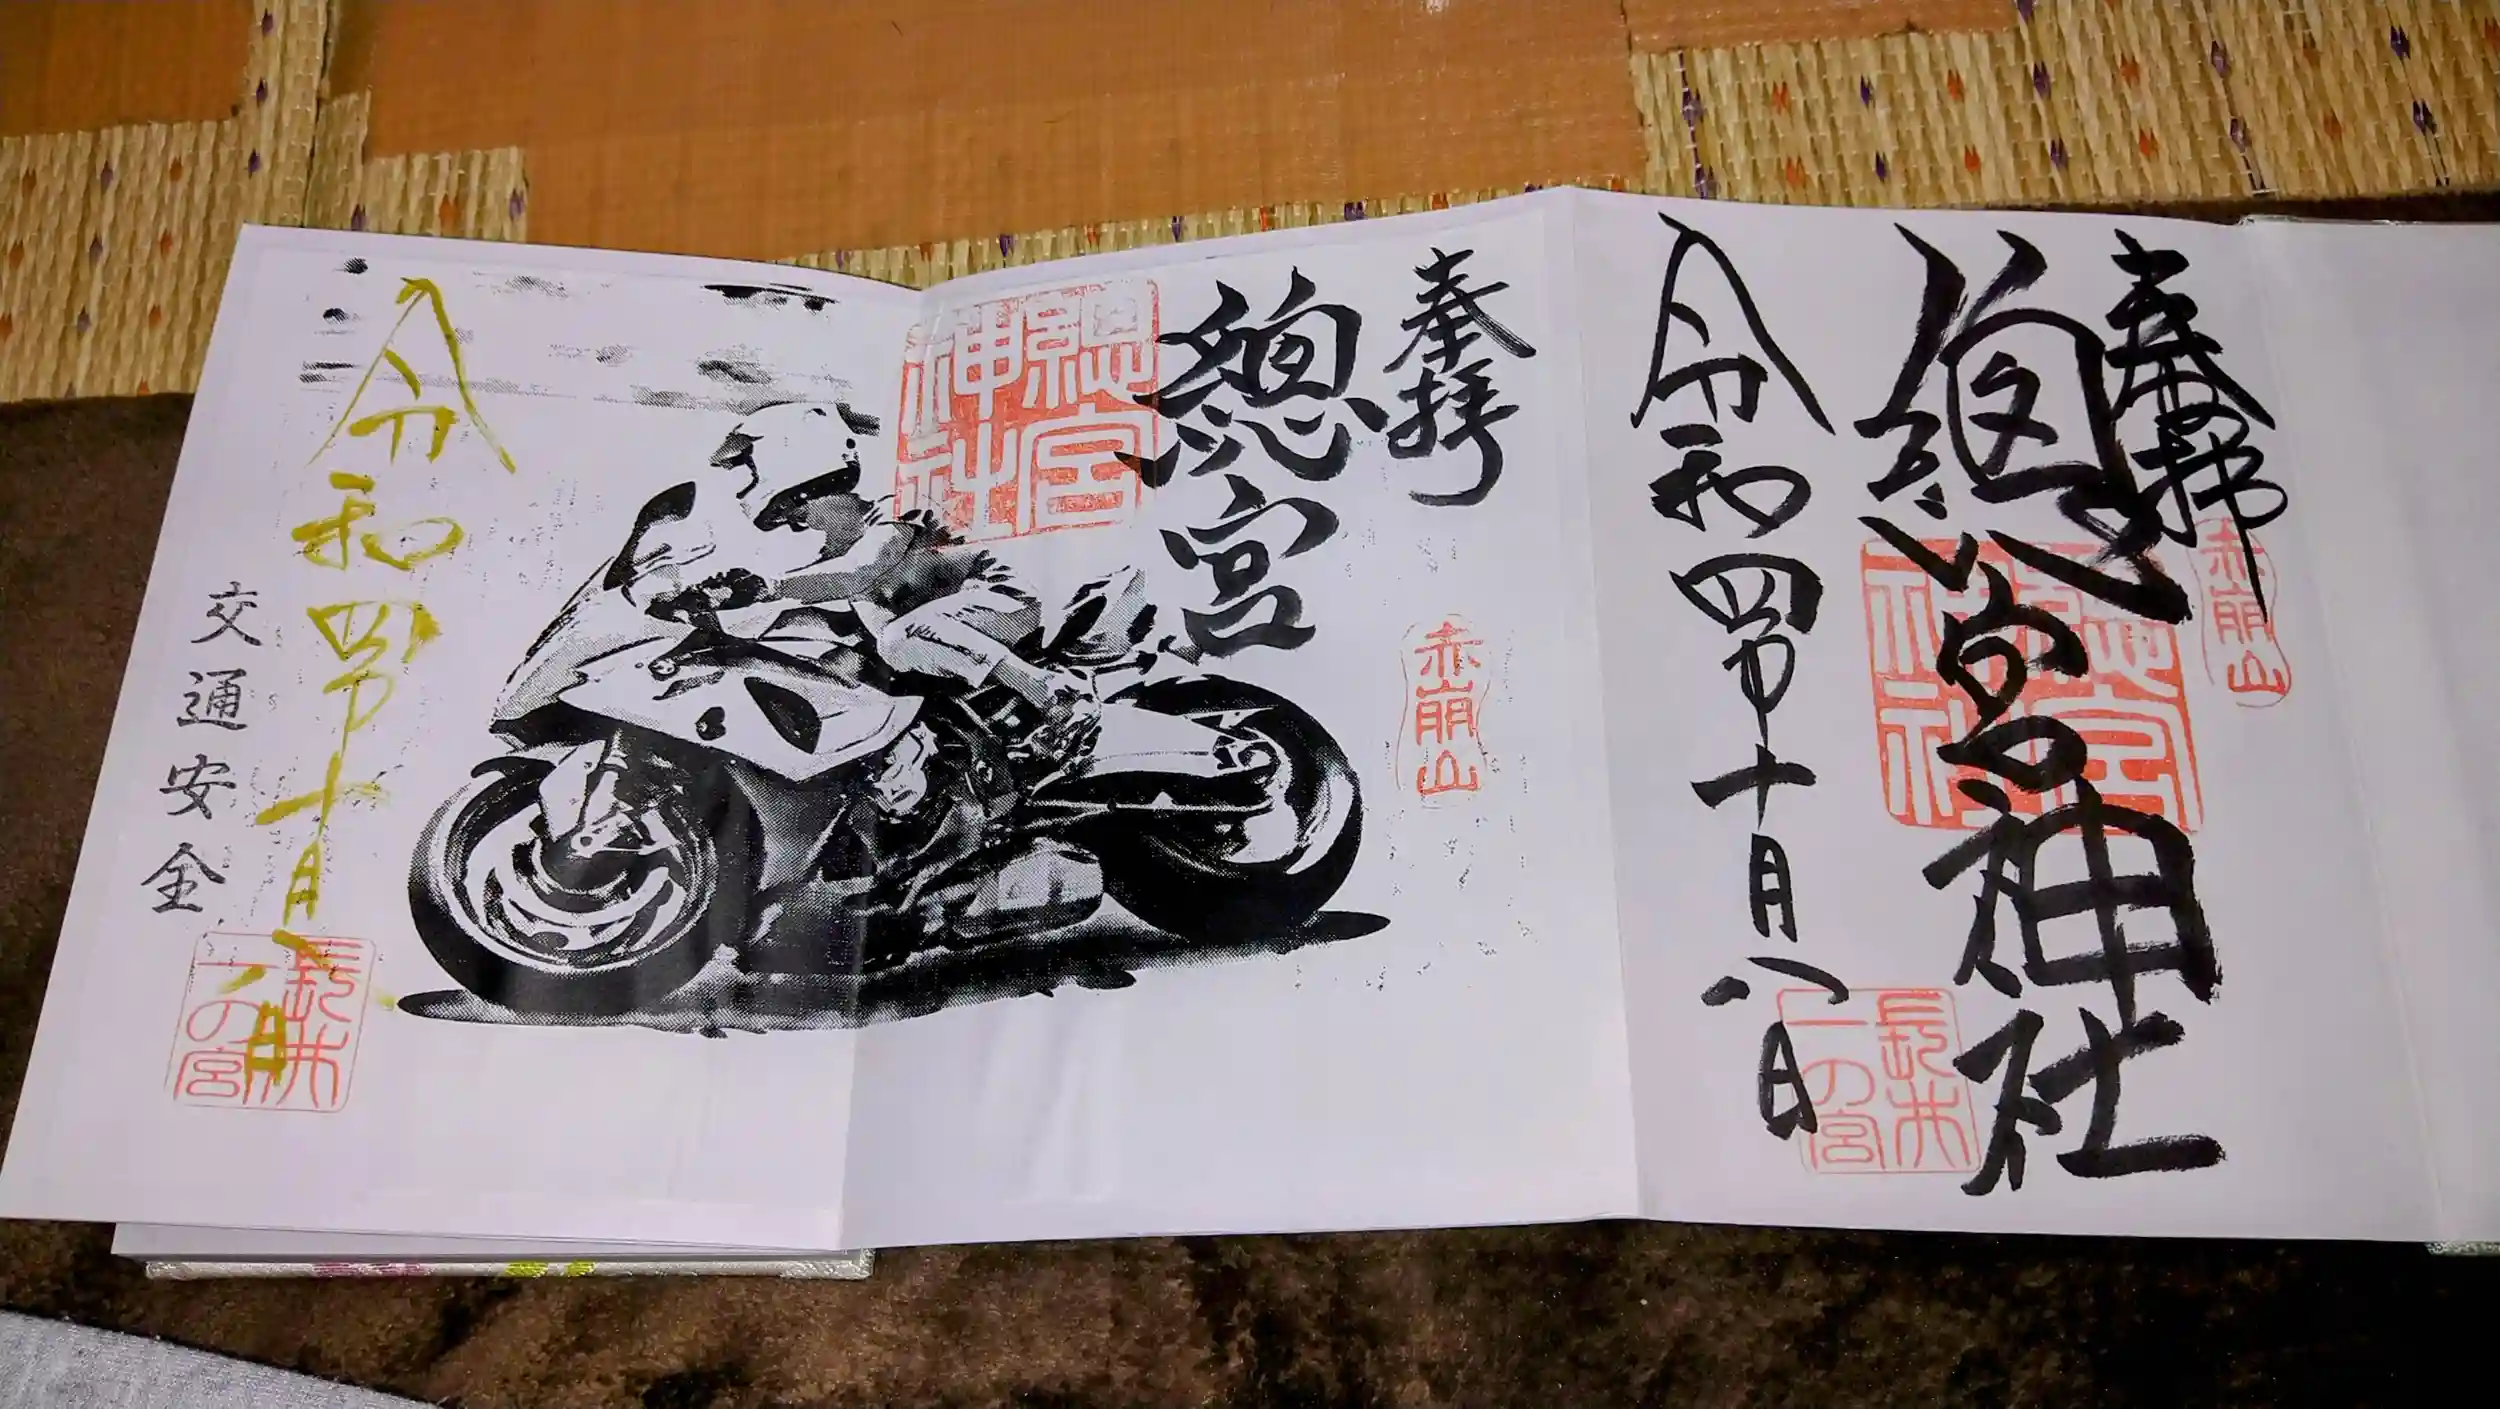 奉拝
赤崩山
總宮神社
總宮神社
令和四年十月八日
長井一の宮
奉拝
赤崩山
總宮
總宮神社
令和四年十月八日
長井一の宮
交通安全